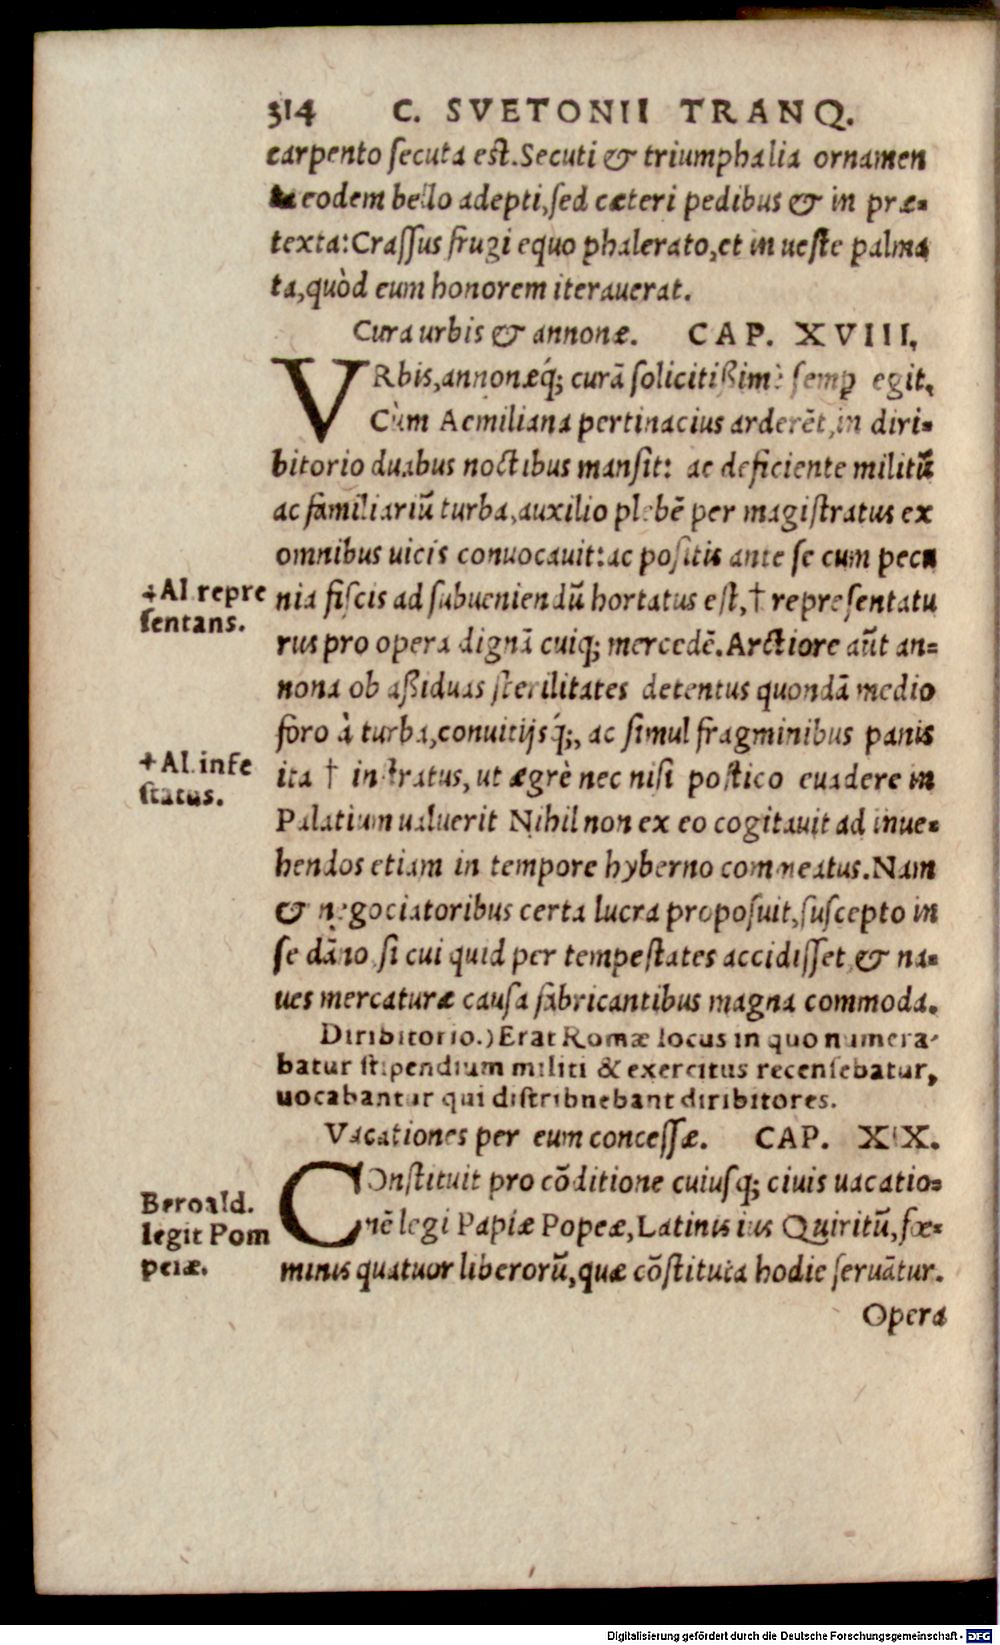 314 C. SVETONII TRANQ.
carpento ſecuta eſt. Secuti & triumphalia ornamen
ta eodem bello adepti, ſed cæteri pedibus & in præ-
texta: Craſſus frugi equo phalerato, et in ueſte palma
ta, quòd eum honorem iterauerat.
Cura urbis & annonæ. CAP. XVIII.
VRbis, annonæq́; curã ſolicitißimè ſemꝑ egit.
Cùm Aemiliana pertinacius arderẽt, in diri-
bitorio duabus noctibus manſit: ac deficiente militũ
ac familiariũ turba, auxilio plebẽ per magiſtratus ex
omnibus uicis conuocauit: ac poſitis ante ſe cum pecu
+Al. repre
ſentans.
nia fiſcis ad ſubueniendũ hortatus eſt, † repreſentatu
rus pro opera dignã cuiq; mercedẽ. Arctiore aũt an-
nona ob aßiduas ſterilitates detentus quondã medio
foro à turba, conuitijsq́;, ac ſimul fragminibus panis
+Al. infe
ſtatus.
ita † inſtratus, ut ægrè nec niſi poſtico euadere in
Palatium ualuerit Nihil non ex eo cogitauit ad inue-
hendos etiam in tempore hyberno commeatus. Nam
& negociatoribus certa lucra propoſuit, ſuſcepto in
ſe dãno, ſi cui quid per tempeſtates accidiſſet, & na-
ues mercaturæ cauſa fabricantibus magna commoda.
Diribitorio.) Erat Romæ locus in quo numera-
batur ſtipendium militi & exercitus recenſebatur,
uocabantur qui diſtribnebant diribitores.
Vacationes per eum conceſſæ. CAP. XIX.
COnſtituit pro cõditione cuiuſq; ciuis uacatio-
Beroald.
legit Pom
peiæ.
nẽ legi Papiæ Popeæ, Latinis ius Quiritũ, fœ-
minis quatuor liberorũ, quæ cõſtituta hodie ſeruãtur.
Opera
Digitalisierung gefördert durch die Deutsche Forschungsgemeinschaft - DFG